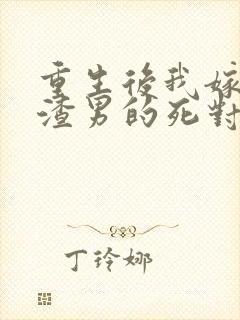 重生後我嫁
渣男的死對
丁玲娜